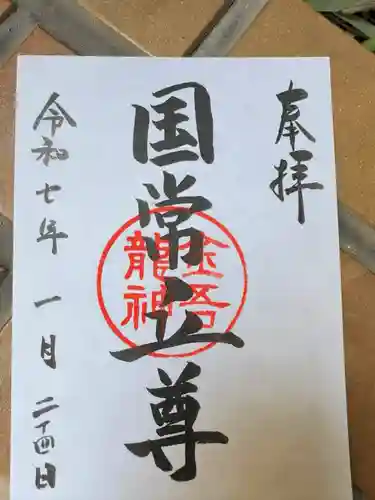 奉拝
国常立尊
金吾
龍神
令和七年 一月 二十四日